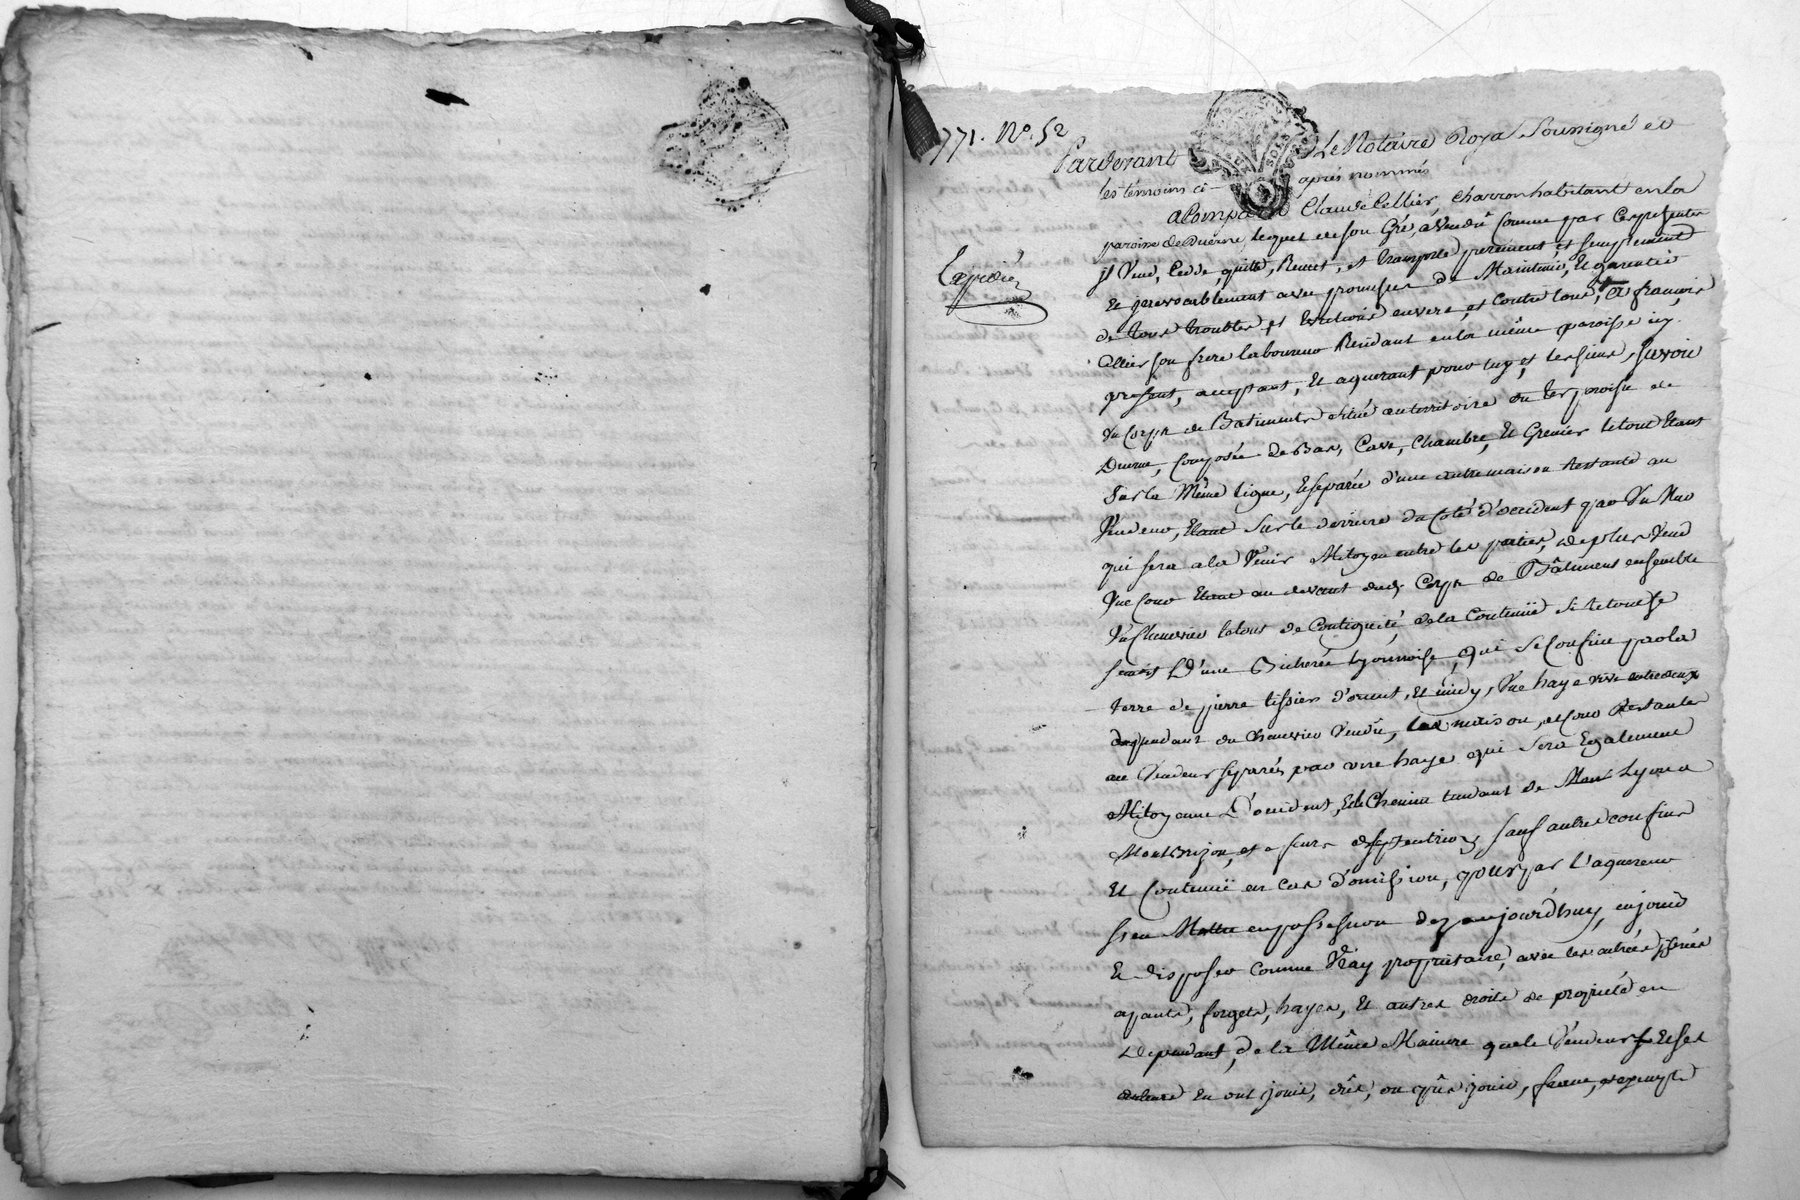 1771. N.º 52
Pardevant Le Notaire Royal Soussigné et
les témoins cy après nommés
Expedié
a Comparu Claude Cellier, charron habitant en la
paroisse de Duerne, lequel de son Gré, a Vendû Comme par Ces presentes
jl Vend, Cedde, quitte, Remet, et transporte purement, et simplement
et jrrevocablement avec promesse de Maintenir, et garentir
de tous troubles et Evictions envers, et contre tous, a françois
Cellier son frere laboureur Residant en la même paroisse icy
present, acceptant, et aquerant pour luy et les siens, savoir
un Corps de Batiments situé au territoire et paroisse de
Duerne, Composée de Bas, Cave, Chambre, et Grenier le tout Etant
sur la Même ligne, et separée d'une autre maison Restante au
Vendeur, Etant sur le derriere du Coté d'occident par un Mur
qui sera a la Venir Mitoyen entre les parties, de plus Vend
une Cour Etant au devant dudt Corps de Bâtiment ensemble
un Chenevier le tout de Contiguité, de la Contenüe le tout
d'une Bicherée lyonnoise, qui se Confine par la
terre de pierre tissier d'orient, et midy, une haye vive entredeux
dependant du Chenevier Vendû, les maison, et Cour Restantes
au Vendeur separés par une haye qui sera Egalement
Mitoyenne d'occident, et le Chemin tendant de Lyon a
Montbrizon, et a feurs de septentrion, sauf autres confins
et Contenüe en cas d'omission, pour par l'aquereur
s'en Mettre en possession dez aujourd'huy, en jouir
et disposer comme Vray proprietaire, avec les entrées, sorties
ayants, forgets, hayes, et autres droits de proprieté en
dependant, de la Même Maniere que le Vendeur et ses
auteurs en ont joui, dûs, ou pûs jouir, franc, et exempt